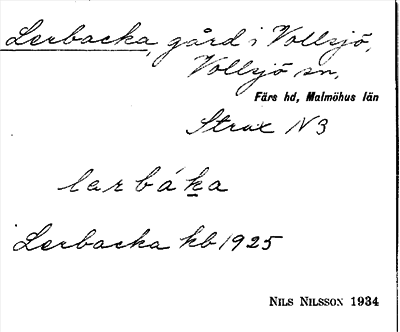 Lerbacka, gård i Vollsjö,
Vollsjö sn,
Färs hd, Malmöhus län
Strax N 3
larbáka
Lerbacka kb 1925
NILS NILSSON 1934